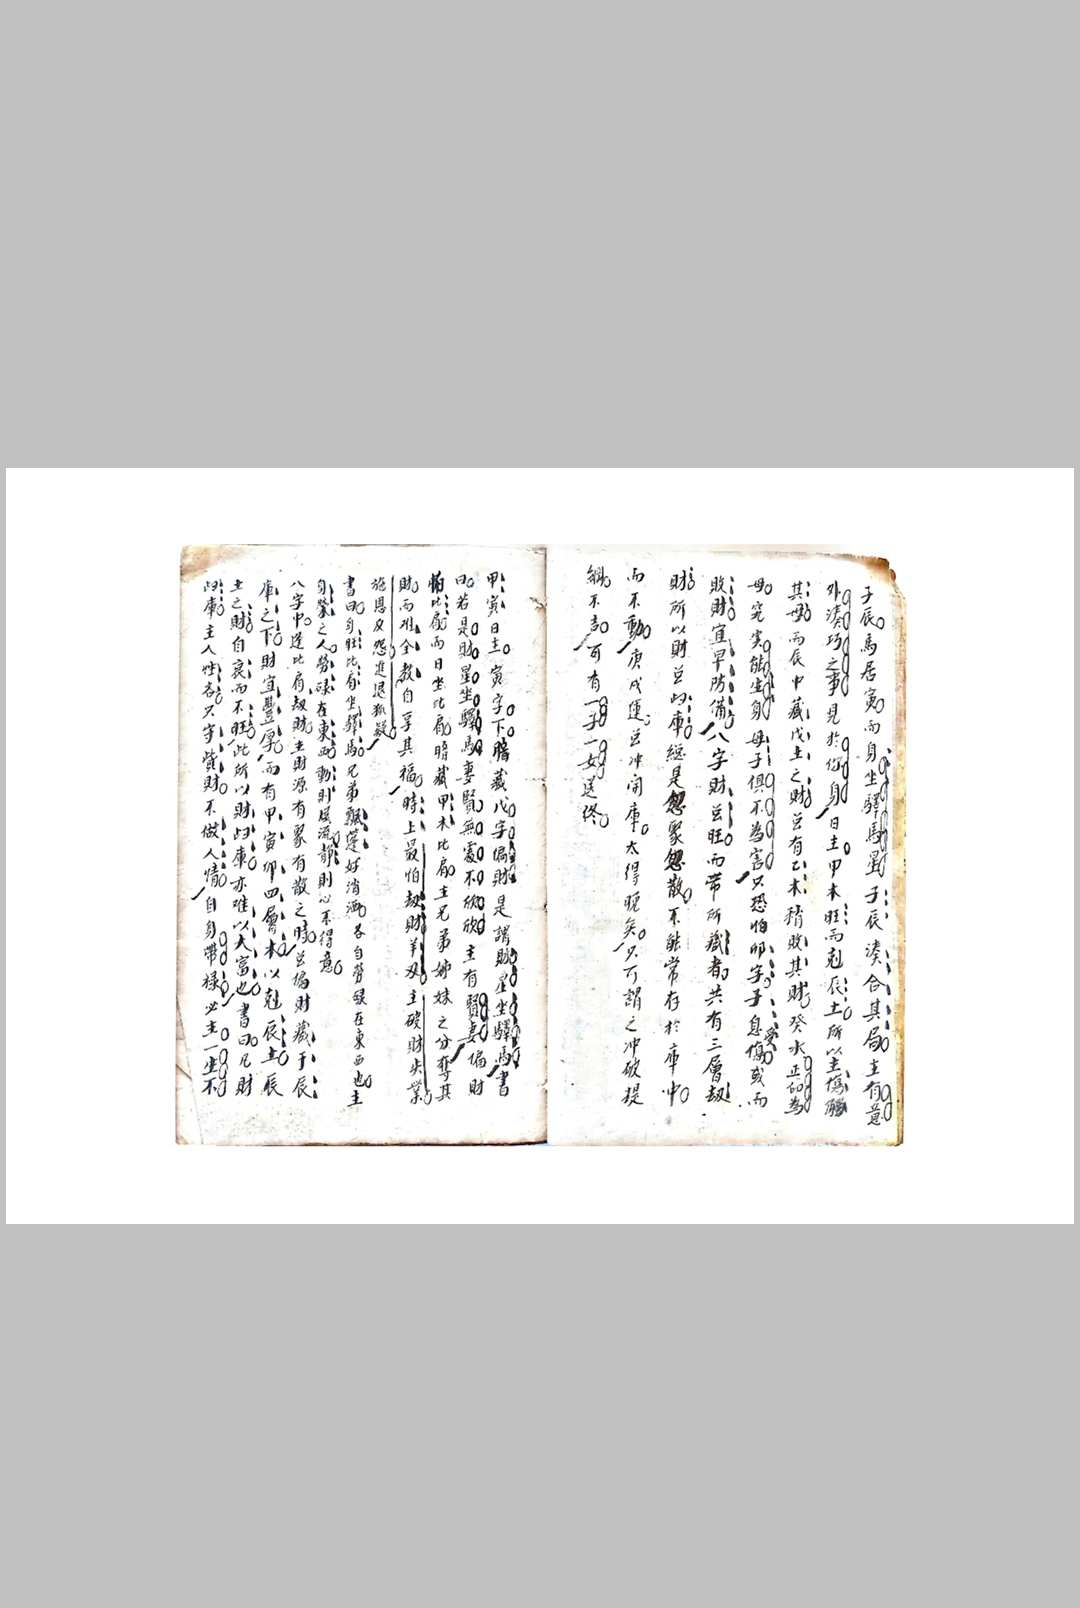 子辰馬居寅而身坐驛馬星子辰湊合其局主有意
外湊巧之事見於你身日主甲木旺而剋辰土所以主傷
其母而辰中藏戊土之財豈有乙木稍敗其財癸水正印為
母究寔能生身母子俱不為害只恐怕卯字子息受傷或而
敗財宜早防備八字財豈旺而帶所藏者共有三層劫
財所以財豈歸庫總是忽聚忽散不能常存於庫中
而不動庚戌運豈冲開庫太得晚矣只可謂之冲破提
綱不吉可有一子二女送終
甲寅日主寅字下暗藏戊字偏財是謂財星坐驛馬書
曰若是財星坐驛馬妻賢無處不欣欣主有賢妻偏財
怕比肩而日坐比肩暗藏甲木比肩主兄弟姊妹之分奪其
財而难全教自享其福時上最怕劫財羊刃主破財失業
施恩反怨進退狐疑
書曰身旺比肩坐驛馬兄弟飄蓬好消洒各自勞碌在東西也主
自營之人勞碌在東西動則風流靜則心不得意
八字中逢比肩劫財主財源有聚有散之時豈偏財藏于辰
庫之下財宜豐厚而有甲寅卯四層木以剋辰土辰
土之財自衰而不旺此所以財歸庫亦难以大富也書曰凡財
歸庫主人性吝只守貲財不做人情自身帶祿必主一生不